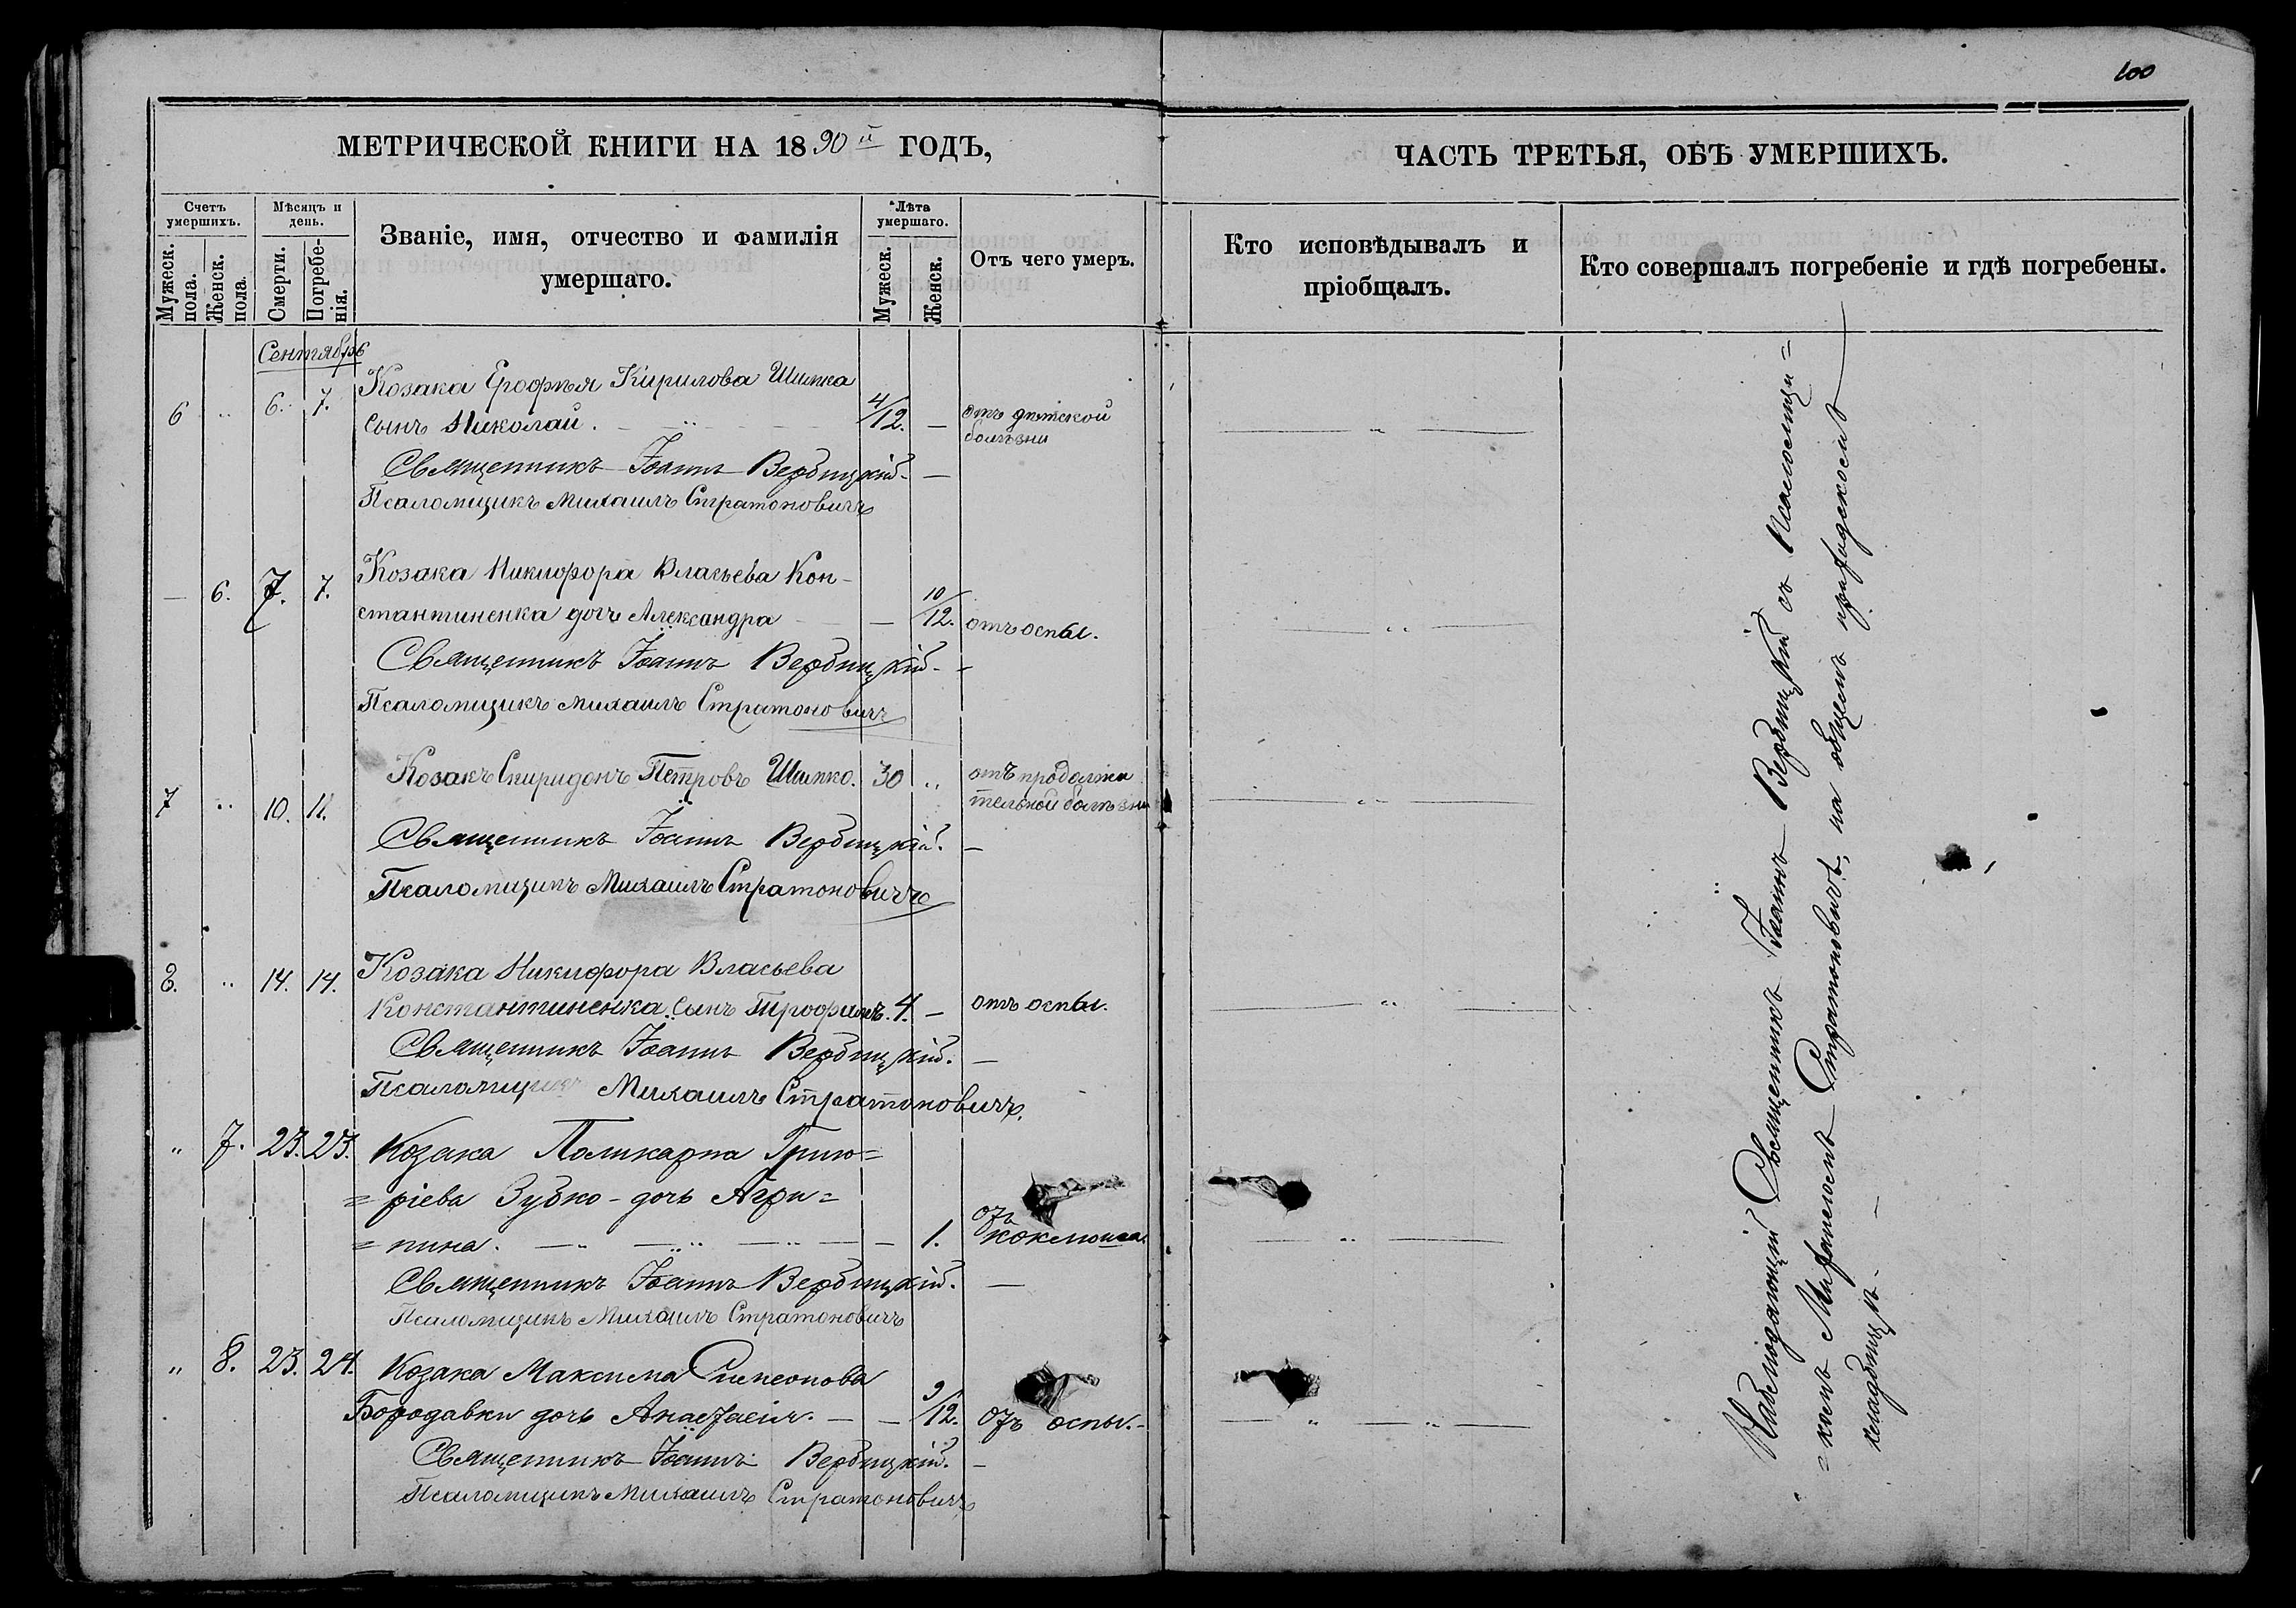 100
МЕТРИЧЕСКОЙ КНИГИ НА 1890й ГОДЪ,
ЧАСТЬ ТРЕТЬЯ, ОБЪ УМЕРШИХЪ.
Счетъ умершихъ.
Мужеск. пола.
Женск. пола.
Мѣсяцъ и день.
Смерти.
Погребенія.
Званіе, имя, отчество и фамилія
умершаго.
Лѣта умершаго.
Мужеск.
Женск.
Отъ чего умеръ.
Кто исповѣдывалъ и
пріобщалъ.
Кто совершалъ погребеніе и гдѣ погребены.
Сентябрь
6 " 6. 7. Козака Ерофѣя Кирилова Шимка
сынъ Николай. 4/12. — отъ дѣтской
болѣзни
Священникъ Іоаннъ Вербицкій. —
Псаломщикъ Михаилъ Стратоновичъ
— 6. 7. 7. Козака Никифора Власьева Кон-
стантиненка дочь Александра — 10/12. отъ оспы.
Священникъ Іоаннъ Вербицкій. -
Псаломщикъ Михаилъ Стратоновичъ
7 " 10. 11. Козакъ Спиридонъ Петровъ Шимко. 30 " отъ продолжи
тельной болѣзни
Священникъ Іоаннъ Вербицкій. —
Псаломщикъ Михаилъ Стратоновичъ
8. " 14. 14. Козака Никифора Власьева
Константиненка сынъ Трофимъ. 4. — отъ оспы.
Священникъ Іоаннъ Вербицкій. —
Псаломщикъ Михаилъ Стратоновичъ.
" 7. 23. 23. Козака Поликарпа Григо=
=ріева Зубко - дочь Агри=
=пина. — 1. отъ коклюша.
Священникъ Іоаннъ Вербицкій. —
Псаломщикъ Михаилъ Стратоновичъ
" 8. 23. 24. Козака Максима Симеонова
Бородавки дочь Анастасія. — — 9/12. отъ оспы. -
Священникъ Іоаннъ Вербицкій. —
Псаломщикъ Михаилъ Стратоновичъ
Наблюдающій Священникъ Іоаннъ Вербицкій съ Псаломщи=
=комъ Михаиломъ Стратоновичъ, на общемъ приходскомъ
кладбищѣ. —